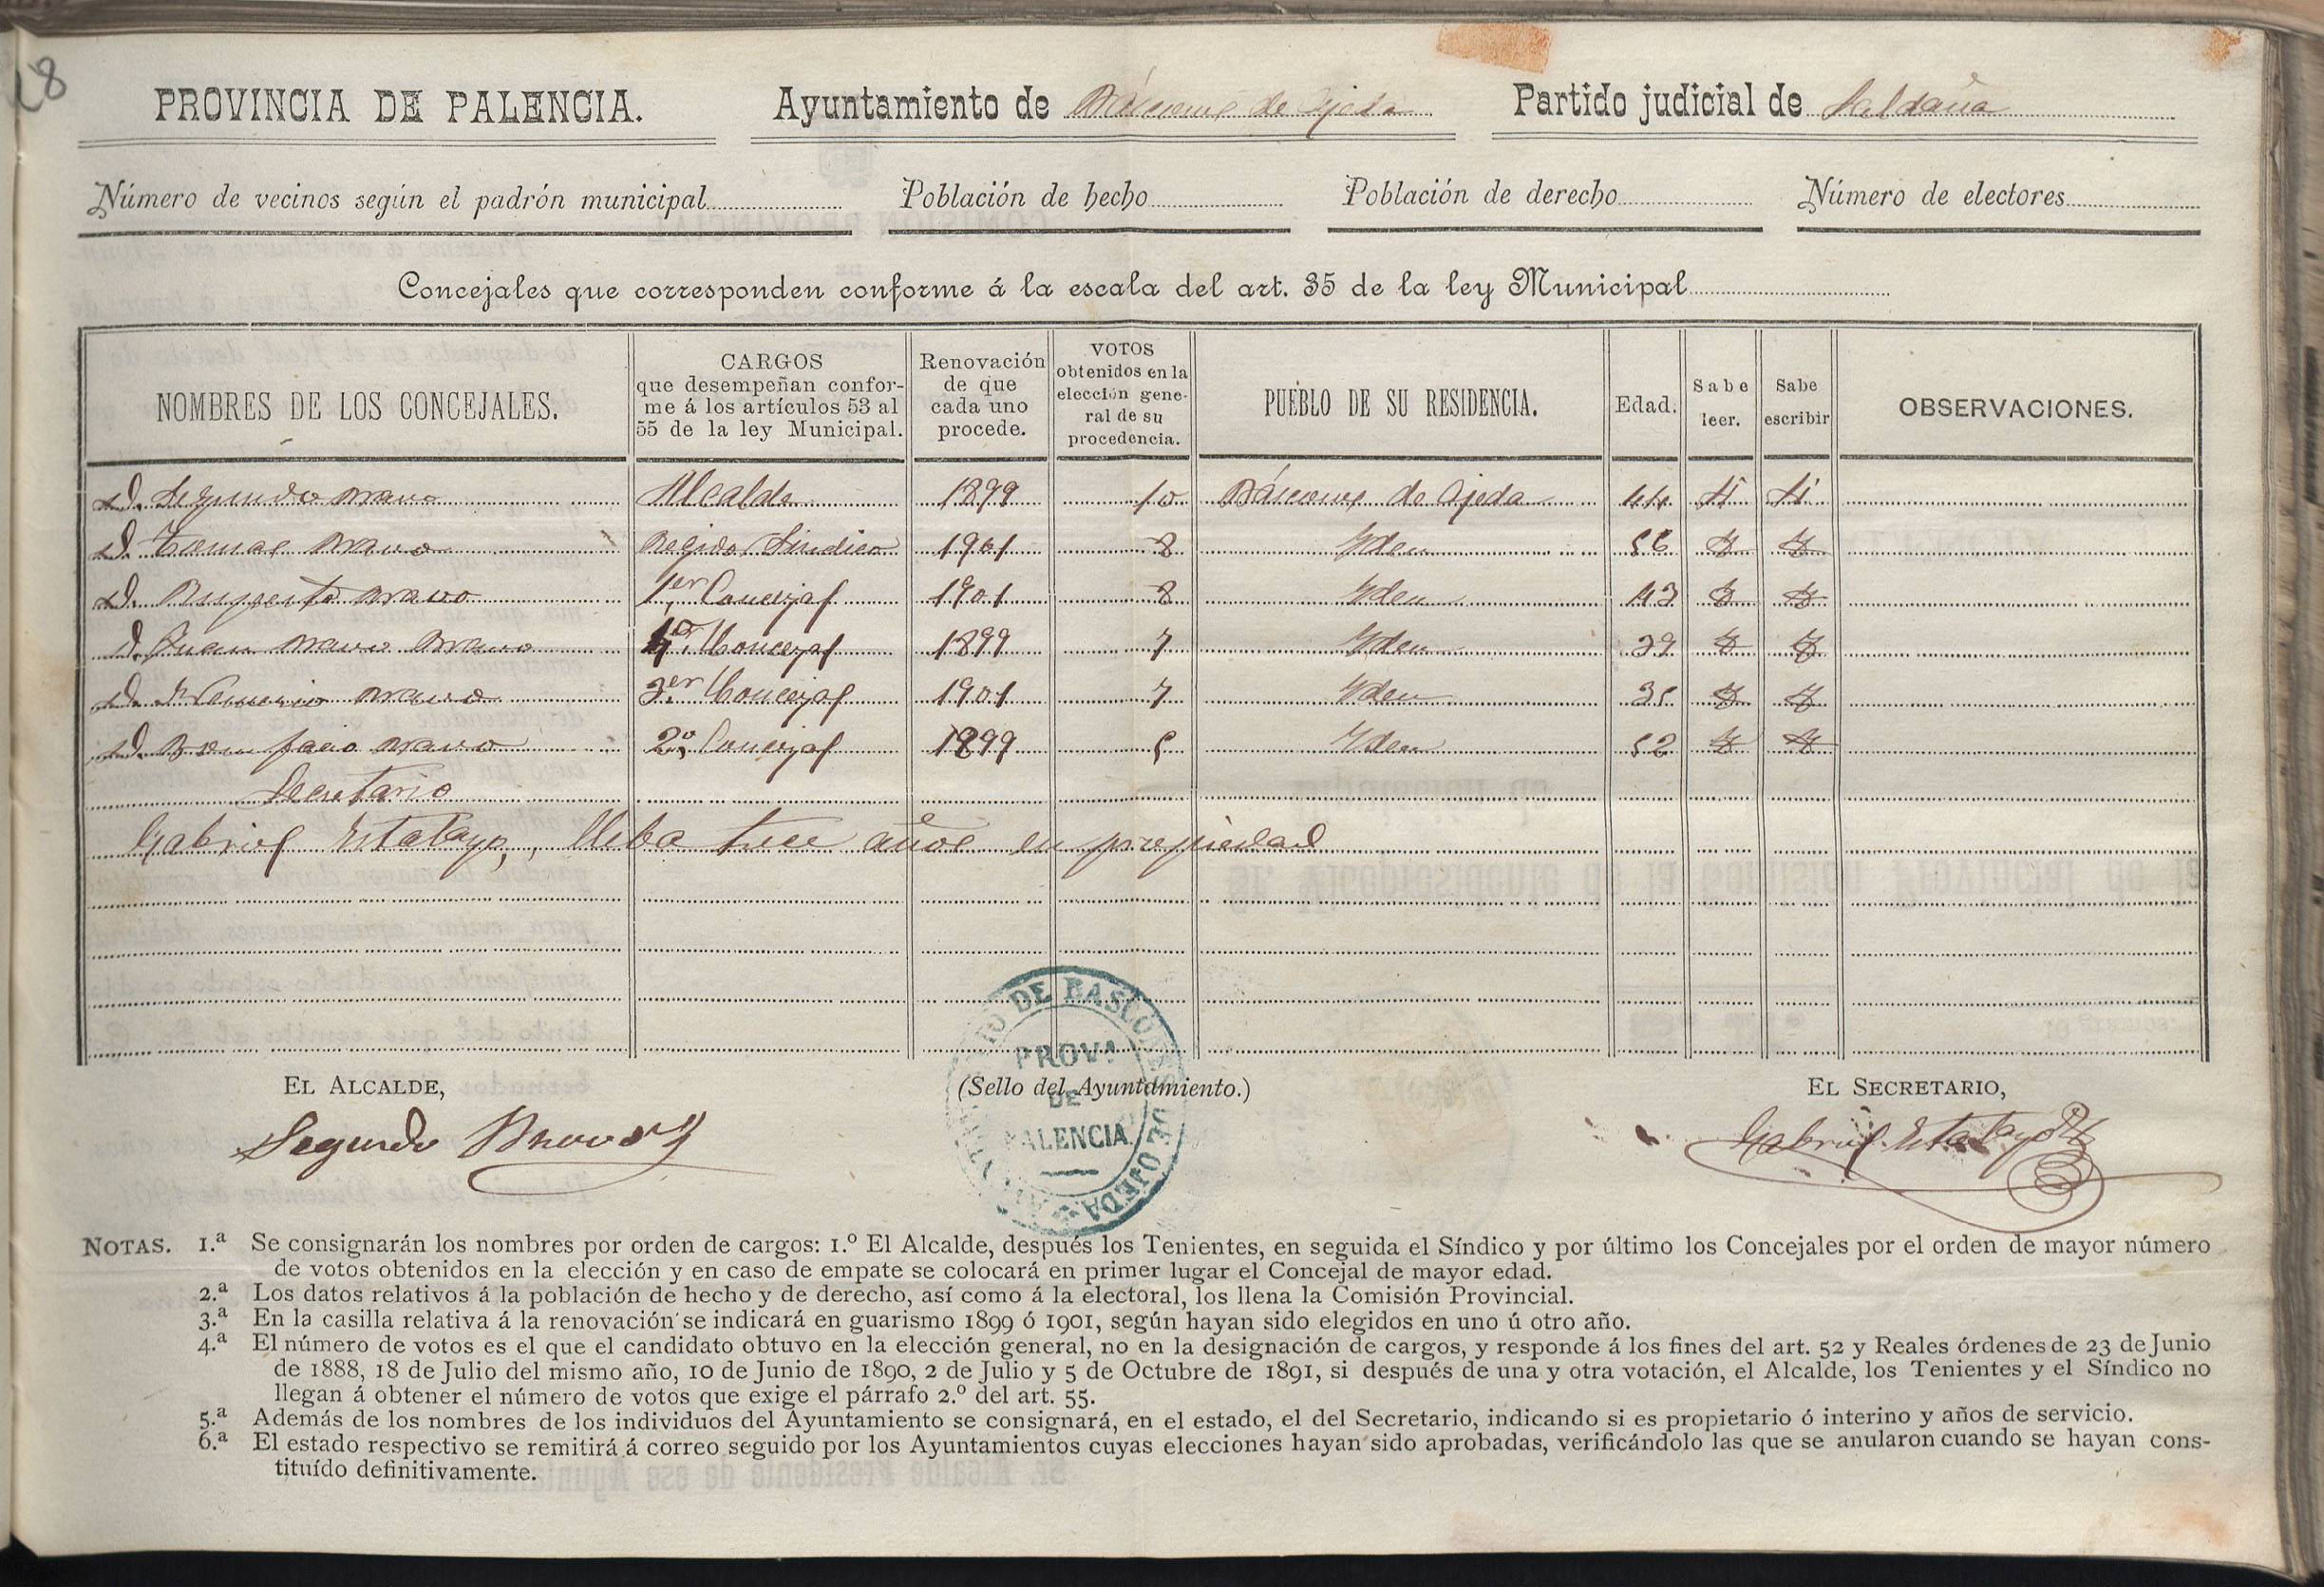 28
PROVINCIA DE PALENCIA. Ayuntamiento de Báscones de Ojeda Partido judicial de Saldaña
Número de vecinos según el padrón municipal Población de hecho Población de derecho Número de electores
Concejales que corresponden conforme á la escala del art. 35 de la ley Municipal
NOMBRES DE LOS CONCEJALES. CARGOS que desempeñan conforme á los artículos 53 al 55 de la ley Municipal. Renovación de que cada uno procede. VOTOS obtenidos en la elección general de su procedencia. PUEBLO DE SU RESIDENCIA. Edad. Sabe leer. Sabe escribir OBSERVACIONES.
D. Segundo Bravo Alcalde 1899 10 Báscones de Ojeda 44 Sí Sí
D. Tomas Bravo Regidor Sindico 1901 8 Yden 56
D. Ruperto Bravo 1er Concejal 1901 8 Yden 43
D. Juan Bravo Bravo 4º Concejal 1899 7 Yden 39
D. Bravo 3er Concejal 1901 7 Yden 35
D. Bonifacio Bravo 2º Concejal 1899 5 Yden 52
Secretario
Gabriel Estalayo, lleba trece años en propiedad
EL ALCALDE, (Sello del Ayuntamiento.) EL SECRETARIO,
Segundo Bravo Gabriel Estalayo
DE BASCONES DE OJEDA
PROVA
DE
PALENCIA
NOTAS. 1.ª Se consignarán los nombres por orden de cargos: 1.º El Alcalde, después los Tenientes, en seguida el Síndico y por último los Concejales por el orden de mayor número
de votos obtenidos en la elección y en caso de empate se colocará en primer lugar el Concejal de mayor edad.
2.ª Los datos relativos á la población de hecho y de derecho, así como á la electoral, los llena la Comisión Provincial.
3.ª En la casilla relativa á la renovación se indicará en guarismo 1899 ó 1901, según hayan sido elegidos en uno ú otro año.
4.ª El número de votos es el que el candidato obtuvo en la elección general, no en la designación de cargos, y responde á los fines del art. 52 y Reales órdenes de 23 de Junio
de 1888, 18 de Julio del mismo año, 10 de Junio de 1890, 2 de Julio y 5 de Octubre de 1891, si después de una y otra votación, el Alcalde, los Tenientes y el Síndico no
llegan á obtener el número de votos que exige el párrafo 2.º del art. 55.
5.ª Además de los nombres de los individuos del Ayuntamiento se consignará, en el estado, el del Secretario, indicando si es propietario ó interino y años de servicio.
6.ª El estado respectivo se remitirá á correo seguido por los Ayuntamientos cuyas elecciones hayan sido aprobadas, verificándolo las que se anularon cuando se hayan cons-
tituído definitivamente.